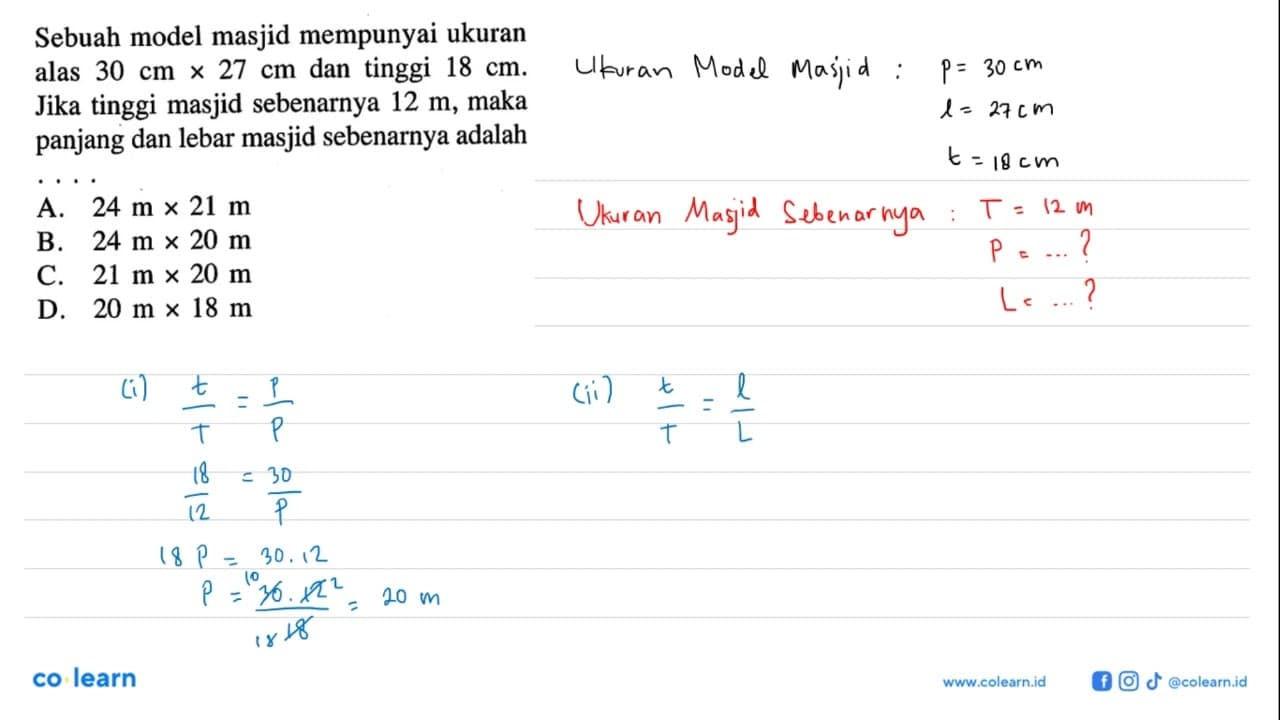 Sebuah model masjid mempunyai ukuran
alas 30 cm × 27 cm dan tinggi 18 cm.
Jika tinggi masjid sebenarnya 12 m, maka
panjang dan lebar masjid sebenarnya adalah
. . . .
A. 24 m × 21 m
B. 24 m × 20 m
C. 21 m × 20 m
D. 20 m × 18 m
Ukuran Model Masjid : p = 30 cm
l = 27 cm
t = 18 cm
Ukuran Masjid Sebenarnya : T = 12 m
P = ... ?
L = ... ?
(i) t/T = p/P
18/12 = 30/P
18 P = 30.12
P = 10 30. 12 2 / 18 18 = 20 m
(ii) t/T = l/L
co learn
www.colearn.id
@colearn.id